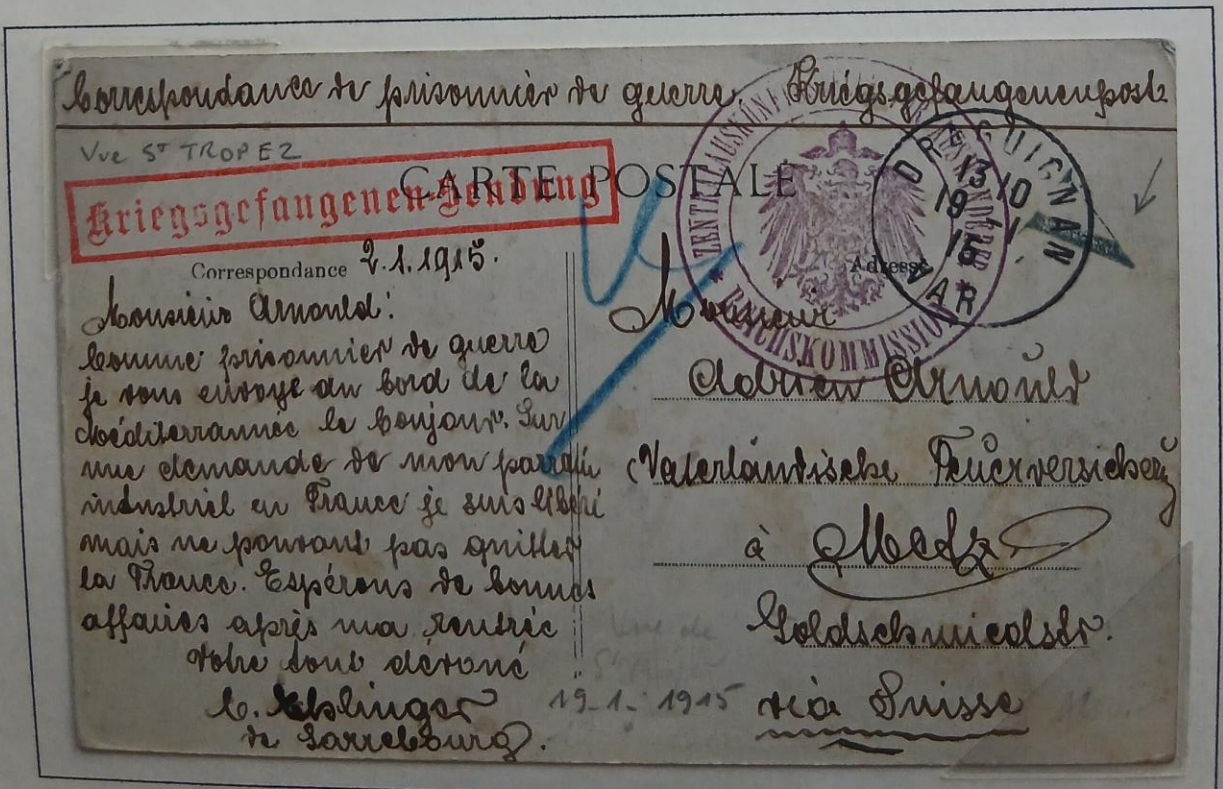 Correspondance de prisonnier de guerre Kriegsgefangenenpost
Vue St TROPEZ
CARTE POSTALE
Kriegsgefangenen-Sendung
ZENTRALAUSKUNF
REICHSKOMMISSION
DRAGUIGNAN
13 10
19 -1
15
VAR
Correspondance 2.1.1915.
Adresse
Monsieur Arnould:
Comme prisonnier de guerre
je vous envoye du bord de la
Méditerrannée le bonjour. Sur
une demande de mon parrain
industriel en France je suis libéré
mais ne pouvant pas quitter
la France. Espérons de bonnes
affaires après ma rentrée
Votre tout dévoué
de Sarrebourg.
Monsieur
Adrien Arnould
(Vaterländische Feuerversicherg
à Metz
Goldschmiedstr.
via Suisse
Vue de
19-1-1915